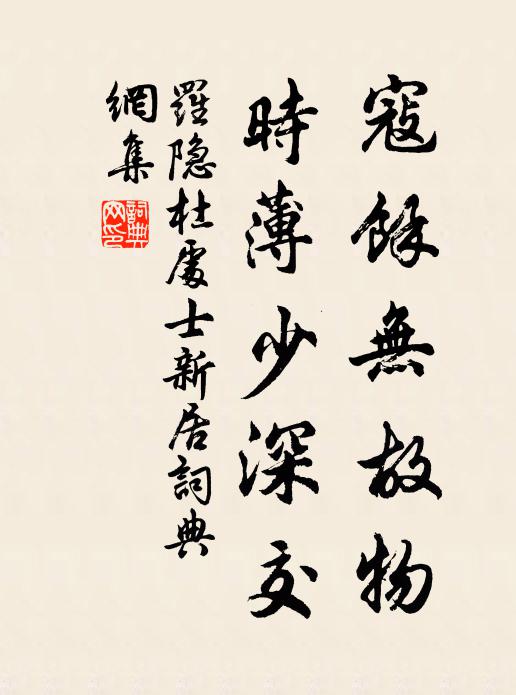 寇餘無故物
時薄少深交
羅隐杜處士新居詞典
網集
詞典網印